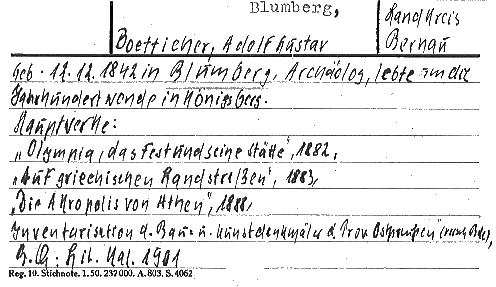 Blumberg,
Landkreis
Boetticher, Adolf Gustav
Bernau
Geb. 12.12.1842 in Blumberg, Archäolog, lebte um die
Jahrhundertwende in Königsberg.
Hauptwerke:
„Olympia, das Fest und seine Stätte", 1882,
„Auf griechischen Landstraßen", 1883,
„Die Akropolis von Athen", 1888,
Inventarisation d. Bau- u. Kunstdenkmäler d. Prov. Ostpreußen
B. Q: Lit. Kal. 1901
Reg. 10. Stichnote. 1. 50. 232000. A. 803. S. 4062